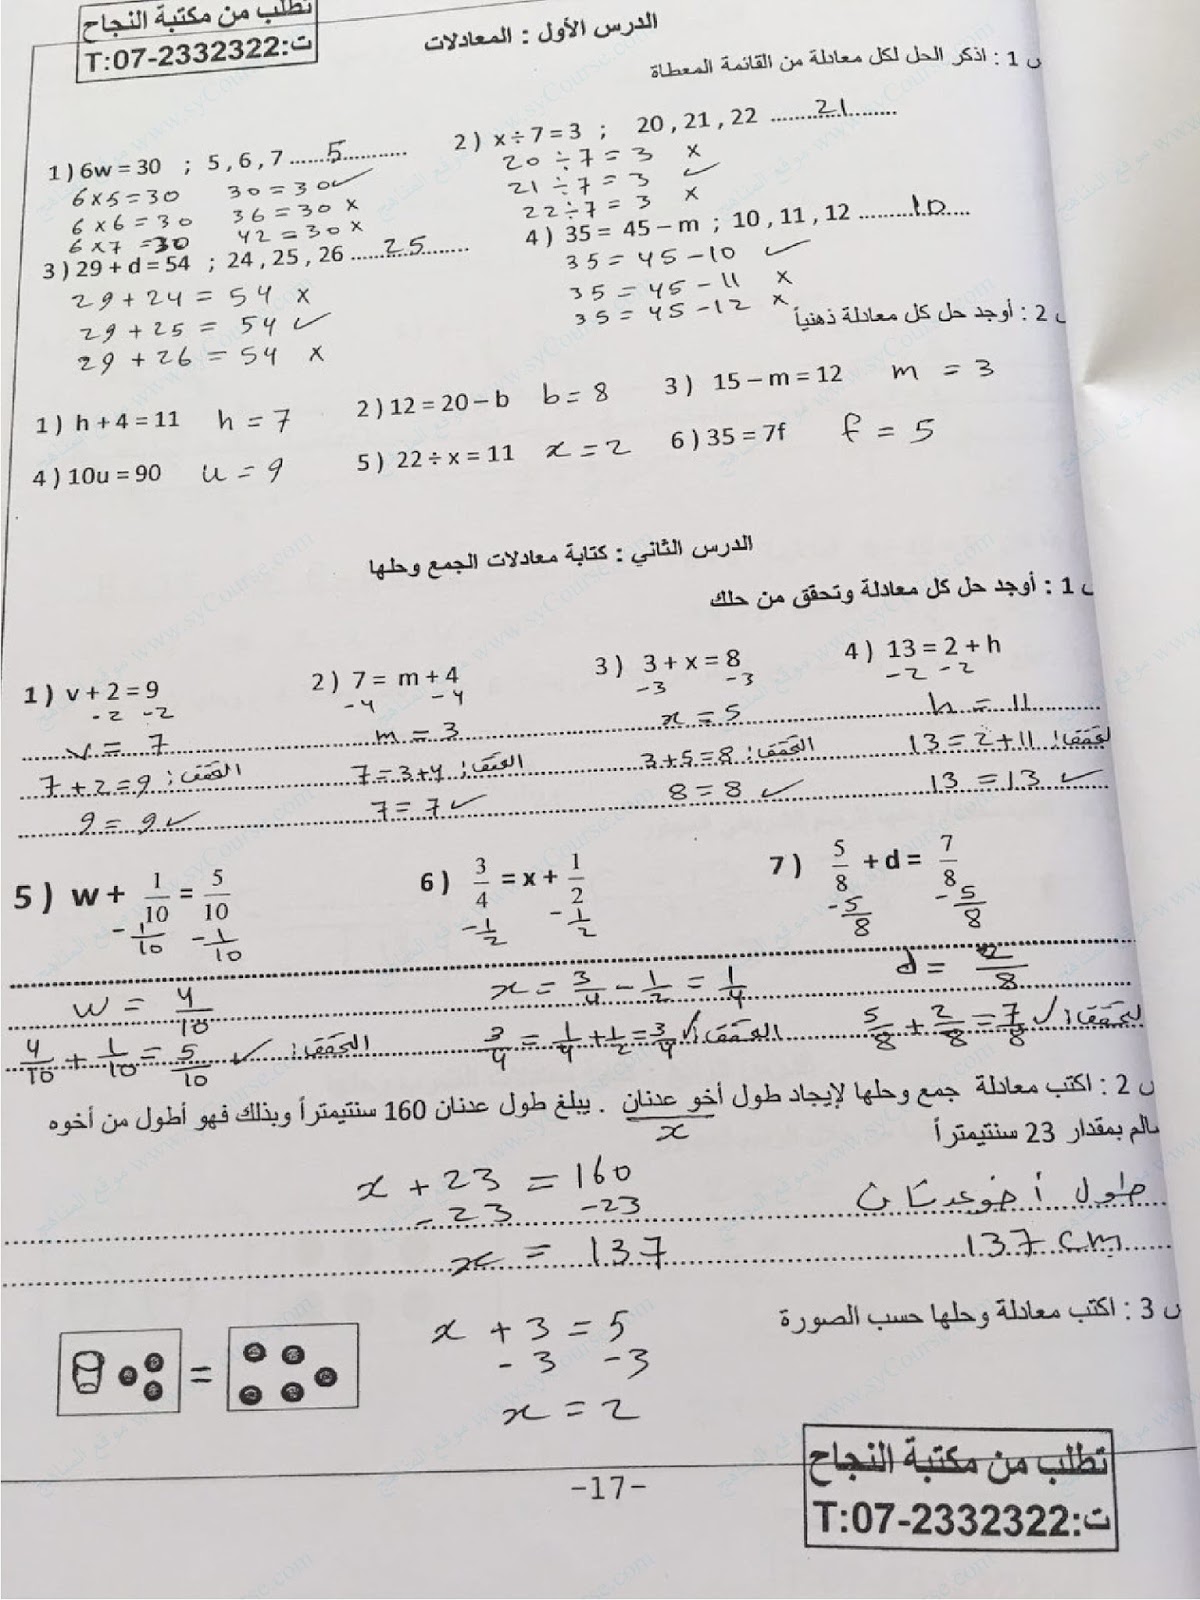 تطلب من مكتبة النجاح
ت:T:07-2332322
الدرس الأول : المعادلات
س 1 : اذكر الحل لكل معادلة من القائمة المعطاة
1 ) 6w = 30 ; 5 , 6 , 7 ....... 5 ...........
6 x 5 = 30 30 = 30 ✓
6 x 6 = 30 36 = 30 x
6 x 7 = 30 42 = 30 x
2 ) x ÷ 7 = 3 ; 20 , 21 , 22 ......... 21 ..........
20 ÷ 7 = 3 x
21 ÷ 7 = 3 ✓
22 ÷ 7 = 3 x
3 ) 29 + d = 54 ; 24 , 25 , 26 ....... 25 .........
29 + 24 = 54 x
29 + 25 = 54 ✓
29 + 26 = 54 x
4 ) 35 = 45 – m ; 10 , 11 , 12 .......... 10 ......
35 = 45 - 10 ✓
35 = 45 - 11 x
35 = 45 - 12 x
س 2 : أوجد حل كل معادلة ذهنياً
1 ) h + 4 = 11 h = 7 2 ) 12 = 20 – b b = 8 3 ) 15 – m = 12 m = 3
4 ) 10u = 90 u = 9 5 ) 22 ÷ x = 11 x = 2 6 ) 35 = 7f f = 5
الدرس الثاني : كتابة معادلات الجمع وحلها
س 1 : أوجد حل كل معادلة وتحقق من حلك
1 ) v + 2 = 9 2 ) 7 = m + 4 3 ) 3 + x = 8 4 ) 13 = 2 + h
-2 -2 -4 -4 -3 -3 -2 -2
v = 7 m = 3 x = 5 h = 11
التحقق: 7 + 2 = 9 التحقق: 7 = 3 + 4 التحقق: 3 + 5 = 8 التحقق: 13 = 2 + 11
9 = 9 ✓ 7 = 7 ✓ 8 = 8 ✓ 13 = 13 ✓
5 ) w + 1/10 = 5/10 6 ) 3/4 = x + 1/2 7 ) 5/8 + d = 7/8
-1/10 -1/10 -1/2 -1/2 -5/8 -5/8
w = 4/10 x = 3/4 - 1/2 = 1/4 d = 2/8
التحقق: 4/10 + 1/10 = 5/10 ✓ التحقق: 3/4 = 1/4 + 1/2 = 3/4 ✓ التحقق: 5/8 + 2/8 = 7/8 ✓
س 2 : اكتب معادلة جمع وحلها لإيجاد طول أخو عدنان . يبلغ طول عدنان 160 سنتيمتراً وبذلك فهو أطول من أخوه
x
سالم بمقدار 23 سنتيمتراً
x + 23 = 160
- 23 -23
x = 137
طول أخو عدنان
137 cm
س 3 : اكتب معادلة وحلها حسب الصورة
x + 3 = 5
- 3 -3
x = 2
=
-17-
تطلب من مكتبة النجاح
ت:T:07-2332322
موقع المناهج www.syCourse.com